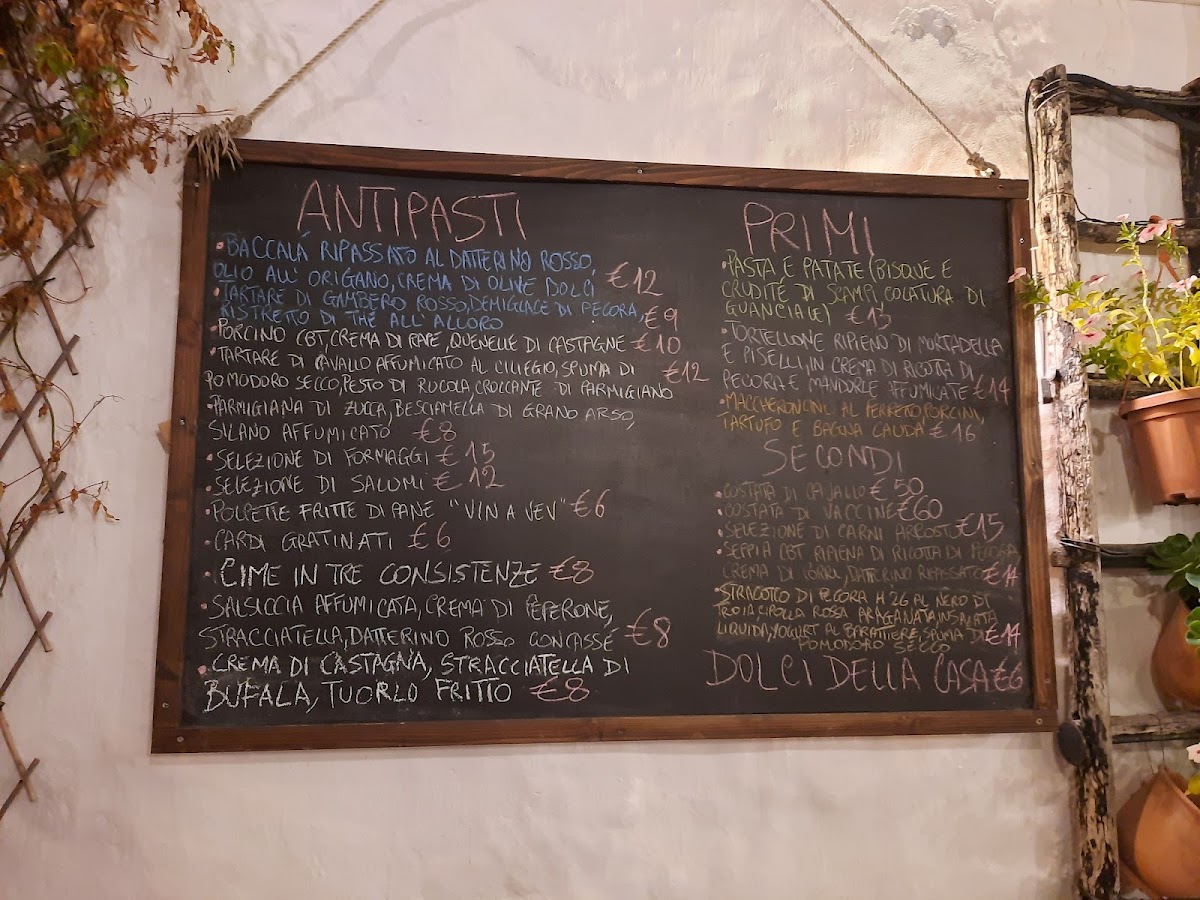 ANTIPASTI
• BACCALÁ RIPASSATO AL DATTERINO ROSSO,
OLIO ALL' ORIGANO, CREMA DI OLIVE DOLCI €12
• TARTARE DI GAMBERO ROSSO, DEMIGLACE DI PECORA, €9
RISTRETTO DI THÉ ALL' ALLORO
• PORCINO CBT, CREMA DI RAPE, QUENELLE DI CASTAGNE €10
• TARTARE DI CAVALLO AFFUMICATO AL CILIEGIO, SPUMA DI €12
POMODORO SECCO, PESTO DI RUCOLA, CROCCANTE DI PARMIGIANO
• PARMIGIANA DI ZUCCA, BESCIAMELLA DI GRANO ARSO,
SILANO AFFUMICATO €8
• SELEZIONE DI FORMAGGI €15
• SELEZIONE DI SALUMI €12
• POLPETTE FRITTE DI PANE "VIN A VEV" €6
• CARDI GRATINATI €6
• CIME IN TRE CONSISTENZE €8
• SALSICCIA AFFUMICATA, CREMA DI PEPERONE,
STRACCIATELLA, DATTERINO ROSSO CONCASSÉ €8
• CREMA DI CASTAGNA, STRACCIATELLA DI
BUFALA, TUORLO FRITTO €8
PRIMI
• PASTA E PATATE (BISQUE E
CRUDITÉ DI SCAMPI, COLATURA DI
GUANCIALE) €13
• TORTELLONE RIPIENO DI MORTADELLA
E PISELLI, IN CREMA DI RICOTTA DI
PECORA E MANDORLE AFFUMICATE €14
• MACCHERONCINI AL FERRETO, PORCINI,
TARTUFO E BAGNA CAUDA €16
SECONDI
• COSTATA DI CAVALLO €50
• COSTATA DI VACCINE €60
• SELEZIONE DI CARNI ARROSTO €15
• SEPPIA CBT RIPIENA DI RICOTTA DI PECORA,
CREMA DI PORRI, DATTERINO RIPASSATO €14
STRACOTTO DI PECORA H 26 AL NERO DI
TROIA, CIPOLLA ROSSA ARMGIANATA, INSALATA
LIQUIDA, YOGURT AL BARATTIERE, SPUMA DI €14
POMODORO SECCO
DOLCI DELLA CASA €6